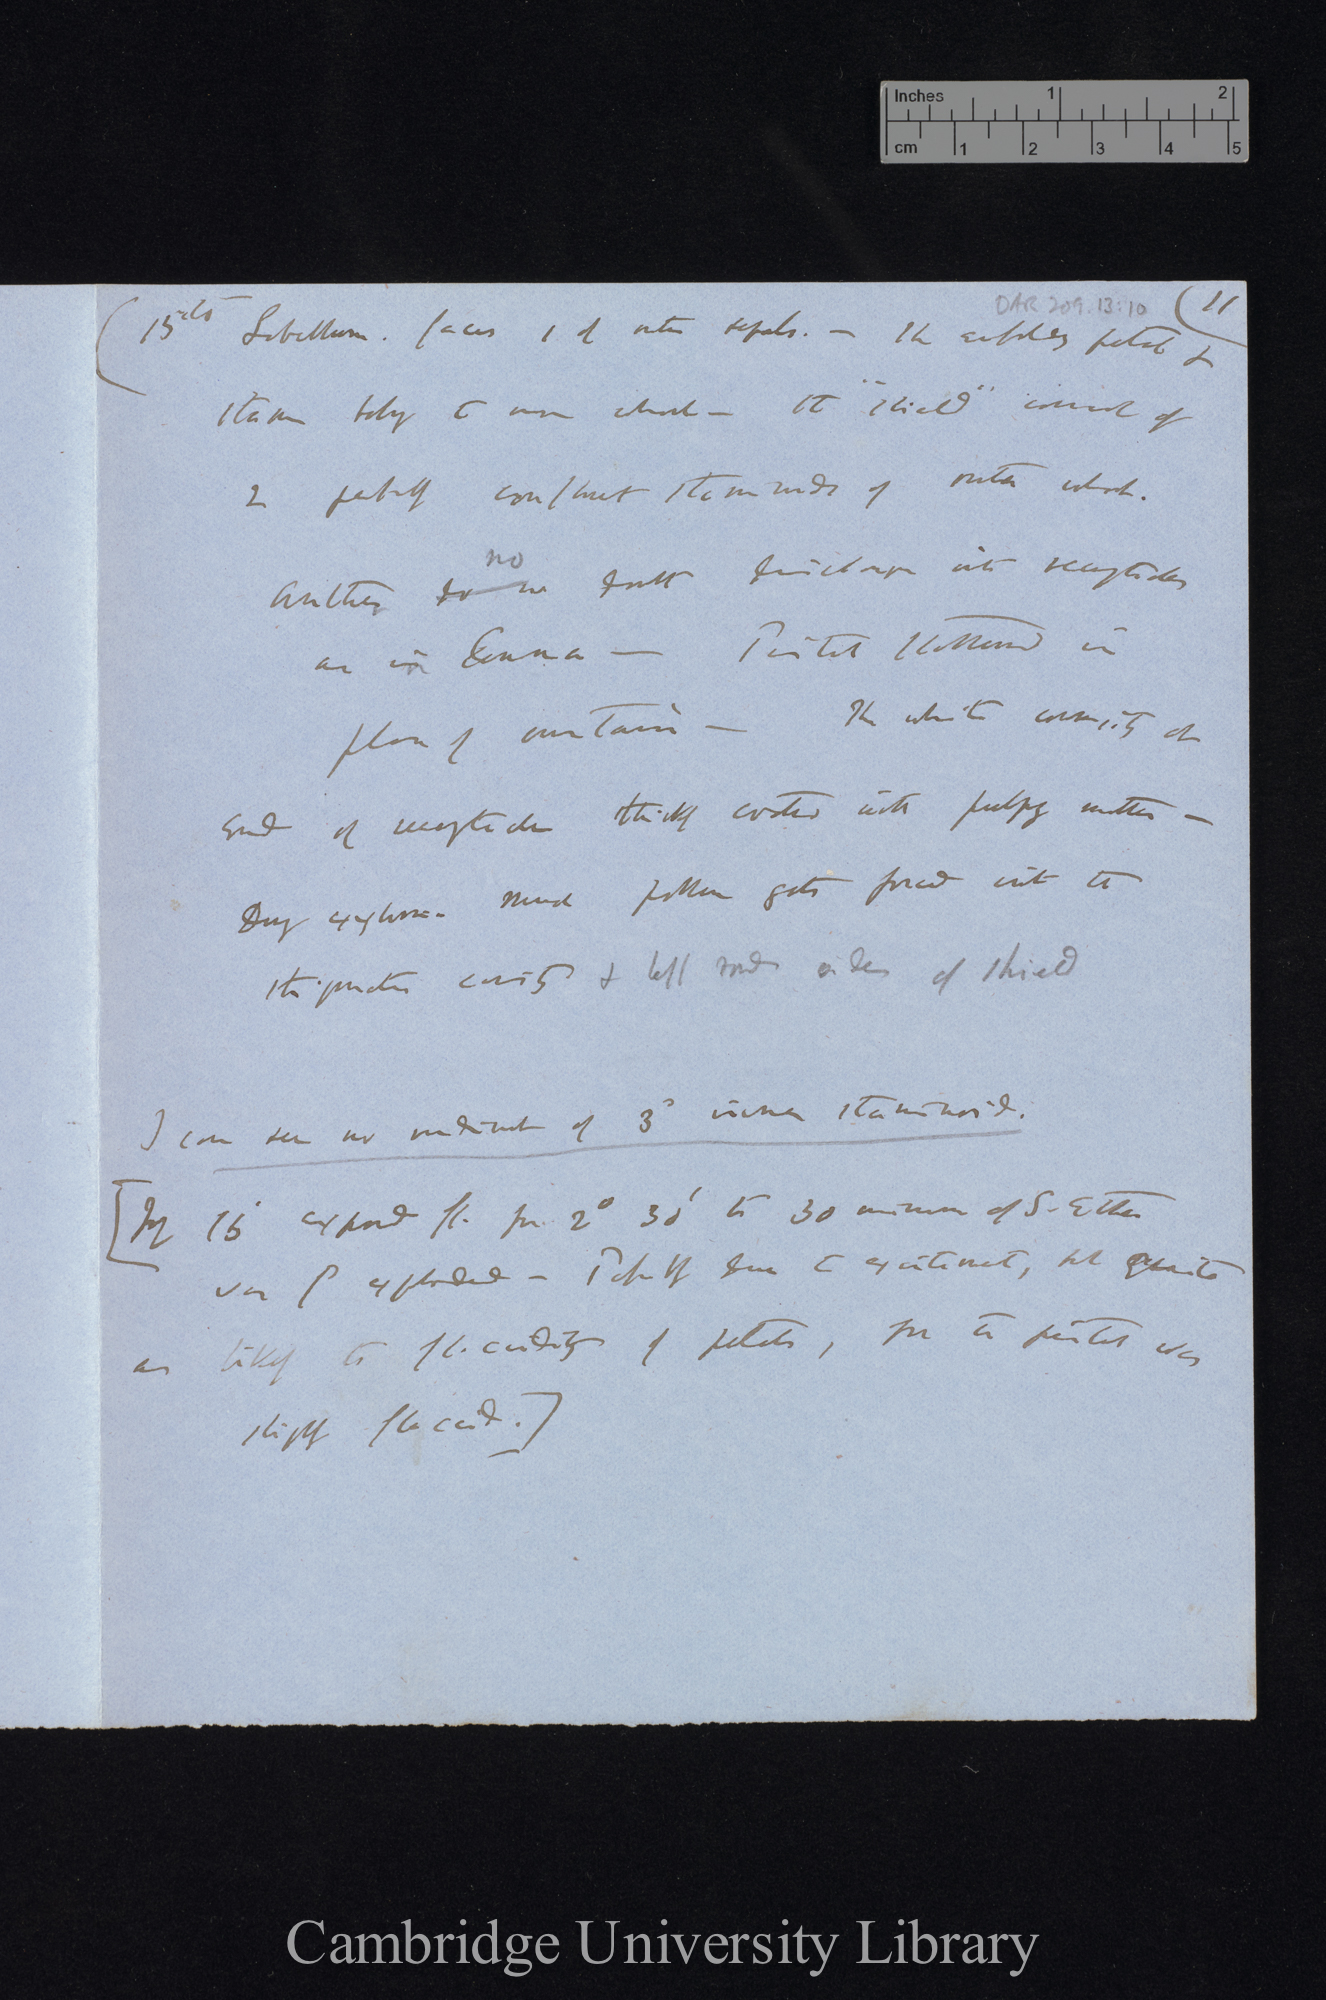 Inches 1 2
cm 1 2 3 4 5
DAR 209.13:10 (11
(15th Labellum. faces 1 of outer sepals. — The anther petal &
stamen belong to inner whorl — The "shield" consists of
2 perfectly confluent staminoids of outer whorl.
no
Anthers do no doubt discharge into receptacles
as in Canna — Pistil flattened in
plane of curtain — The white cavity at
end of receptacle thickly coated with pulpy matter —
During explosion much pollen gets forced into the
stigmatic cavity & left round sides of shield
I can see no rudiment of 3d inner staminoid.
[July 15 exposed fl. for 2° 30' to 30 minims of S. Ether
was exploded — Probably due to excitement, but quite
as likely to flaccidity of petals, for the pistil was
slightly flaccid.]
Cambridge University Library